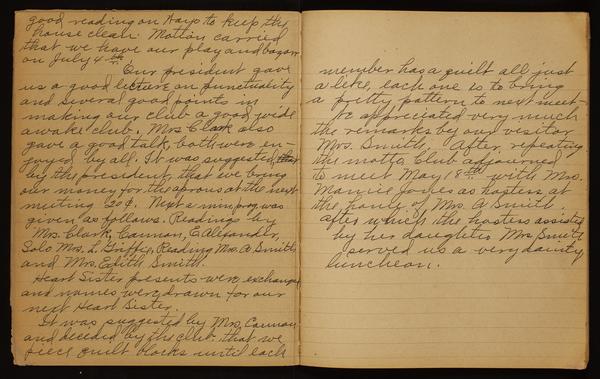 good reading on Ways to keep the
house clean. Motion carried
that we have our play and bazaar
on July 4th.
Our president gave
us a good lecture on punctuality
and several good points in
making our club a good wide
awake club. Mrs Clark also
gave a good talk, both were en-
joyed by all. It was suggested
by the president, that we bring
our money for the aprons at the next
meeting 20¢. Next a min. prog. was
given as follows. Readings by
Mrs. Clark, Cannan, E. Alexander,
Solo Mrs. L. Griffin, Reading Mrs. A. Smith
and Mrs. Edith Smith.
Heart Sister presents were exchanged
and names were drawn for our
next Heart Sister.
It was suggested by Mrs. Cannan
and decided by the club. that we
piece quilt blocks until each
member has a quilt all just
alike, each one is to bring
a pretty pattern to next meet-
We appreciated very much
the remarks by our visitor
Mrs. Smith. After, repeating
the motto Club adjourned
to meet May 18th with Mrs.
Mamie Jones as hostess at
the home of Mrs. A Smith
after which the hostess assisted
by her daughter Mrs Smith
served us a very dainty
luncheon.